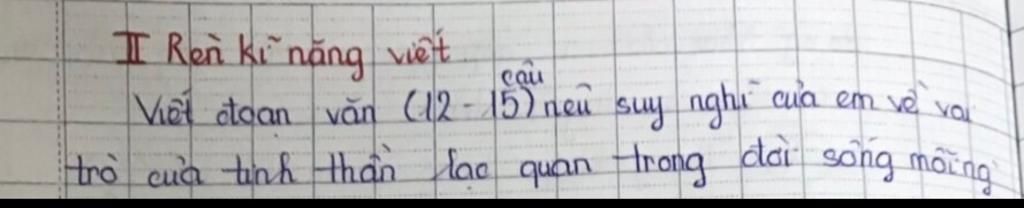 II Rèn kĩ năng viết
câu
Viết đoạn văn (12 - 15) nêu suy nghĩ của em về vai
trò của tinh thần lạc quan trong đời sống mỗi ng